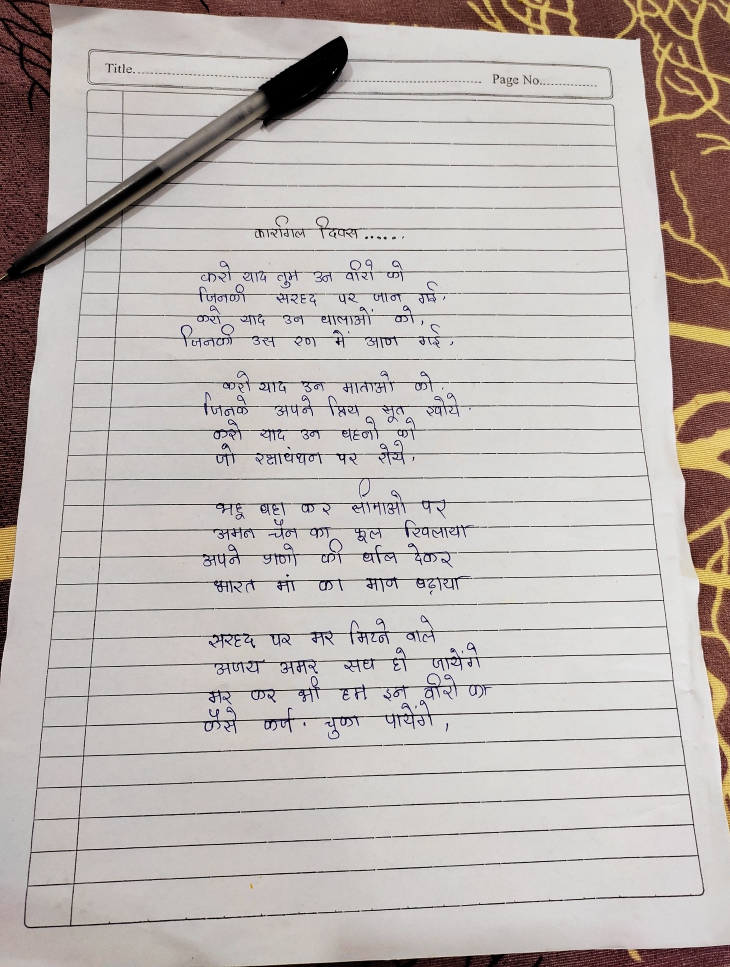 Title..............................................................................
Page No................
कारगिल दिवस ......
करो याद तुम उन वीरो को
जिनकी सरहद पर जान गई,
करो याद उन बालाओं को,
जिनकी उस रण में आन गई,
करो याद उन माताओ को.
जिनके अपने प्रिय सूत खोये.
करो याद उन बहनो को
जो रक्षाबंधन पर रोये,
बहा कर सीमाओ पर
अमन चैन का फूल खिलाया
अपने प्राणो की बलि देकर
भारत मां का मान बढ़ाया
सरहद पर मर मिटने वाले
अजय अमर सब हो जायेंगे
मर कर भी हम इन वीरो का
कैसे कर्ज. चुका पायेंगे,